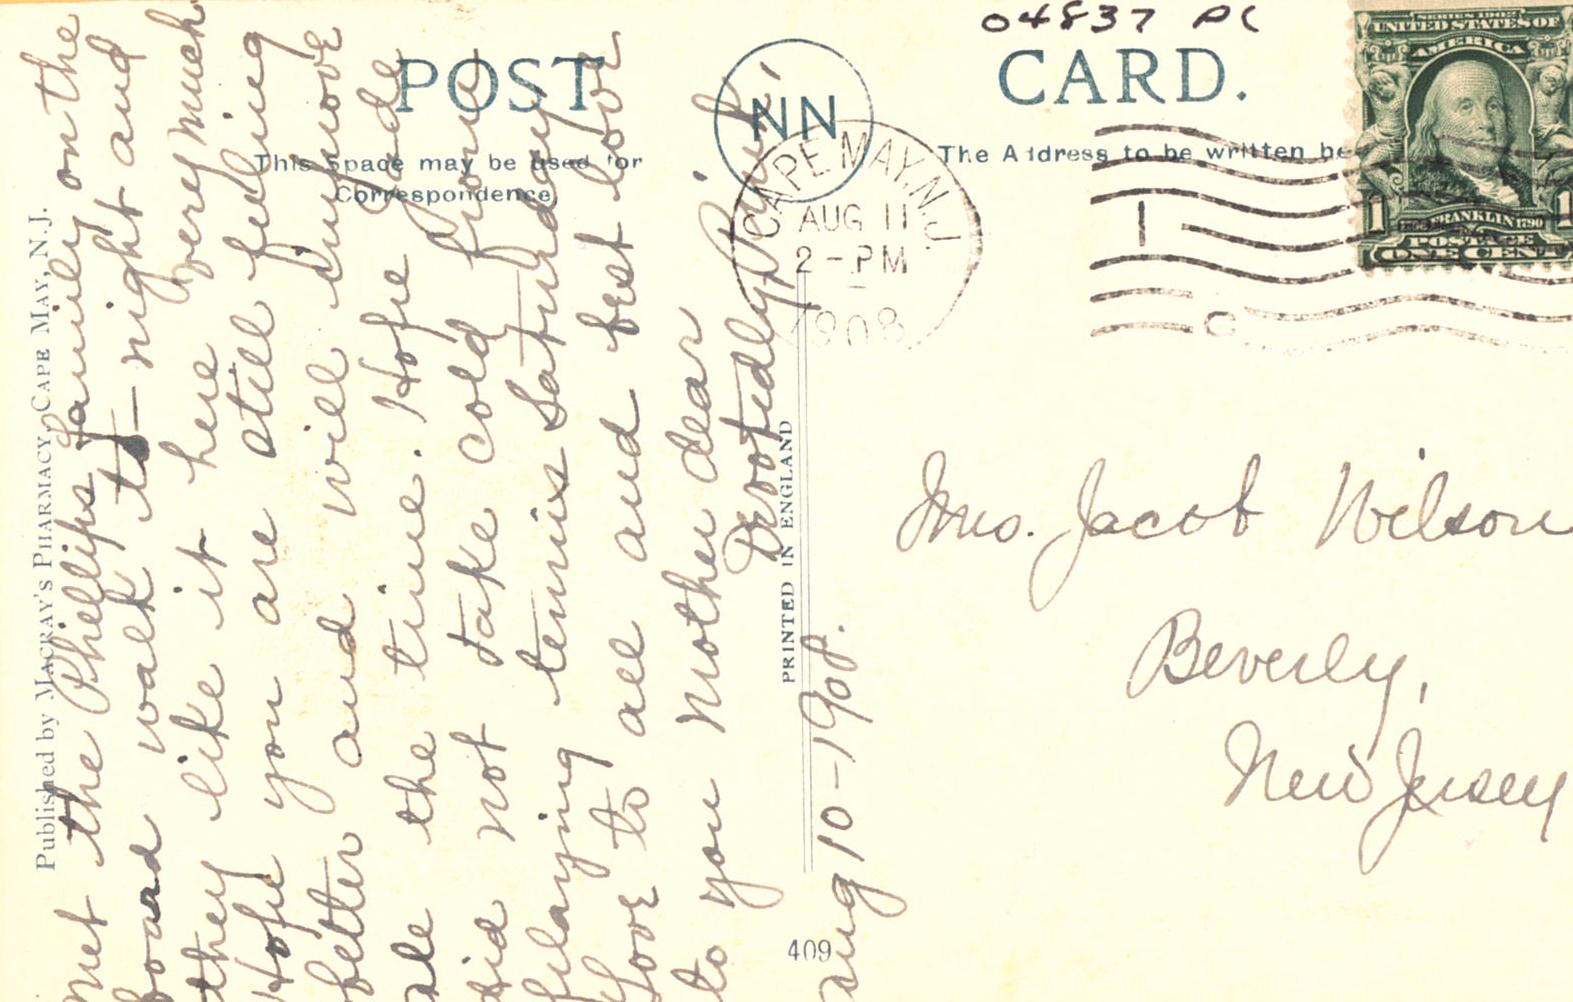 04837 PC
POST CARD.
NN
This space may be used for
Correspondence,
The Address to be written he
CAPE MAY, N.J.
AUG 11
2 - PM
1908
SERIES 1902
UNITED STATES OF
AMERICA
1 FRANKLIN 1790 1
POSTAGE
ONE CENT
Published by MACRAY'S PHARMACY, CAPE MAY, N.J.
met the Phillips family on the
board walk to-night and
they like it here very much
Hope you are still feeling
better and will improve
all the time. Hope Jade
did not take cold from
playing tennis Saturday
Love to all and best love
to you Mother dear
Devotedly,
Aug 10-1908.
PRINTED IN ENGLAND
409
Mrs. Jacob Wilson
Beverly,
New Jersey